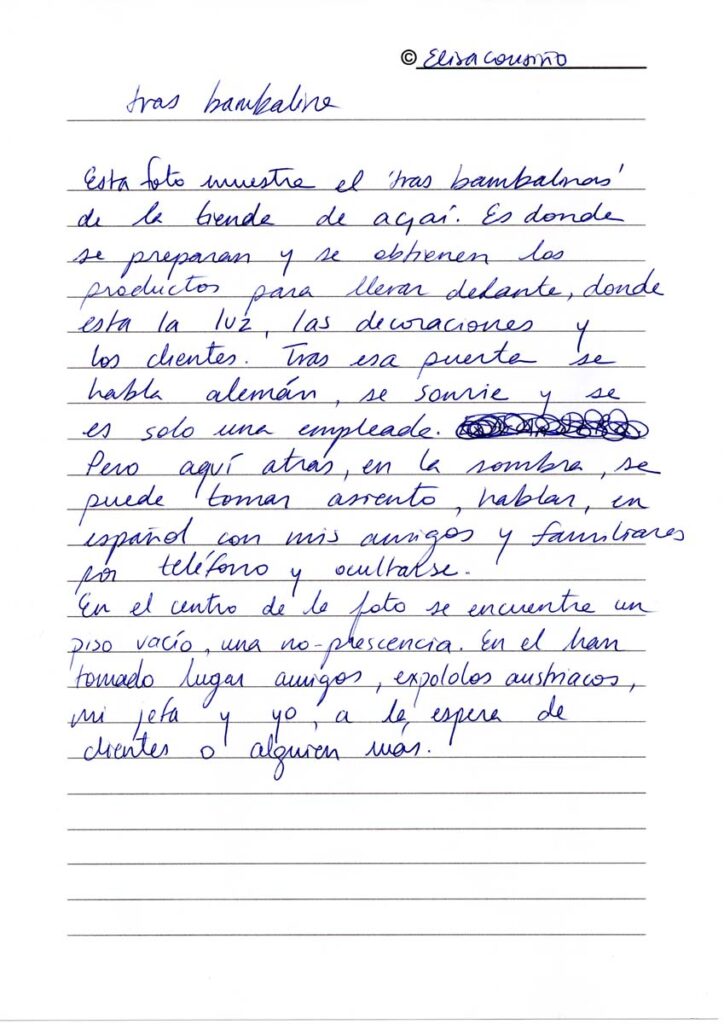 © Elisa Cousiño
tras bambaline
Esta foto muestra el 'tras bambalinas'
de la tienda de açaí. Es donde
se preparan y se obtienen los
productos para llevar delante, donde
esta la luz, las decoraciones y
los clientes. Tras esa puerta se
habla alemán, se sonrie y se
es solo una empleade.
Pero aquí atrás, en la sombra, se
puede tomar asiento, hablar, en
español con mis amigos y familiares
por teléfono y ocultarse.
En el centro de la foto se encuentre un
piso vacío, una no-prescencia. En el han
tomado lugar amigos, expololos austriacos,
mi jefa y yo, a la espera de
clientes o alguien más.